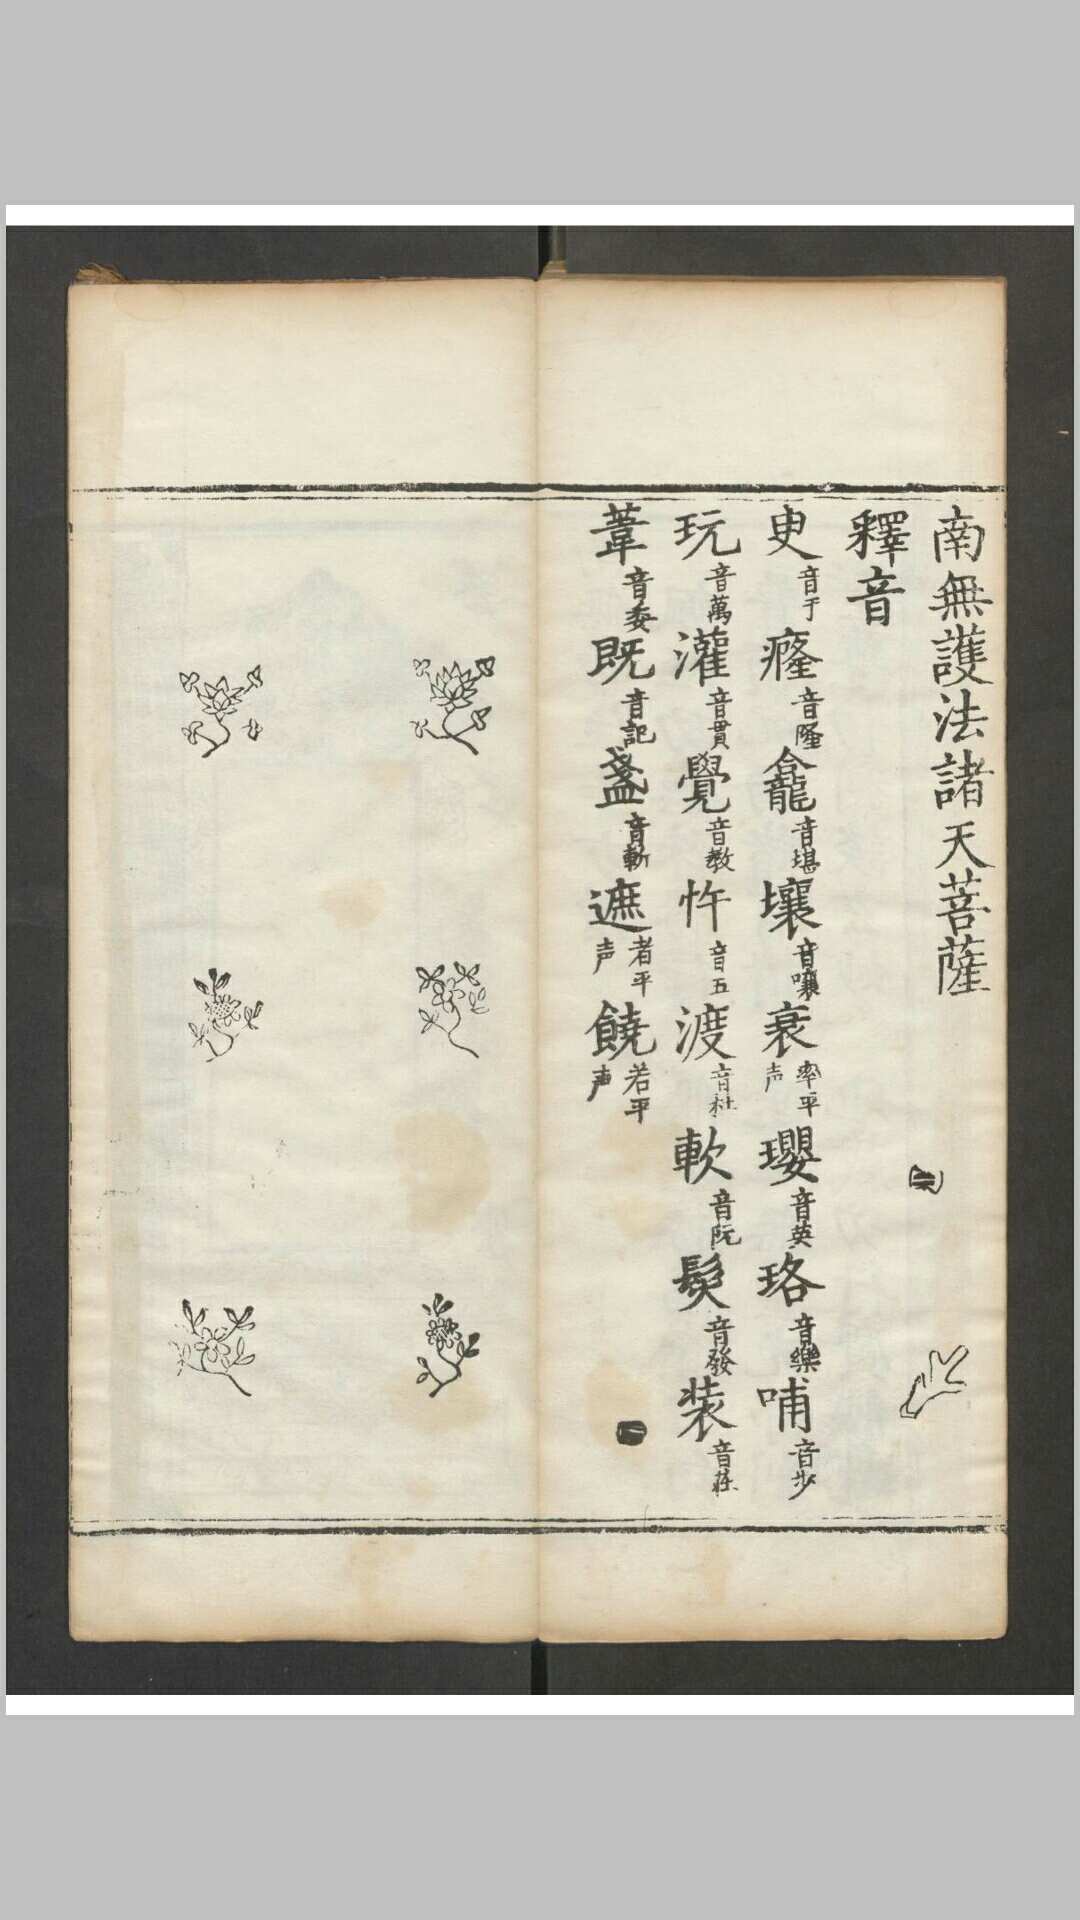 南無護法諸天菩薩
釋音
㬰音于 癃音隆 龕音堪 壤音嚷 衰率平声 瓔音英 珞音樂 哺音步
玩音萬 灌音貫 覺音教 忤音五 渡音杜 軟音阮 髮音發 装音莊
葦音委 既音記 盞音斬 遮者平声 饒若平声